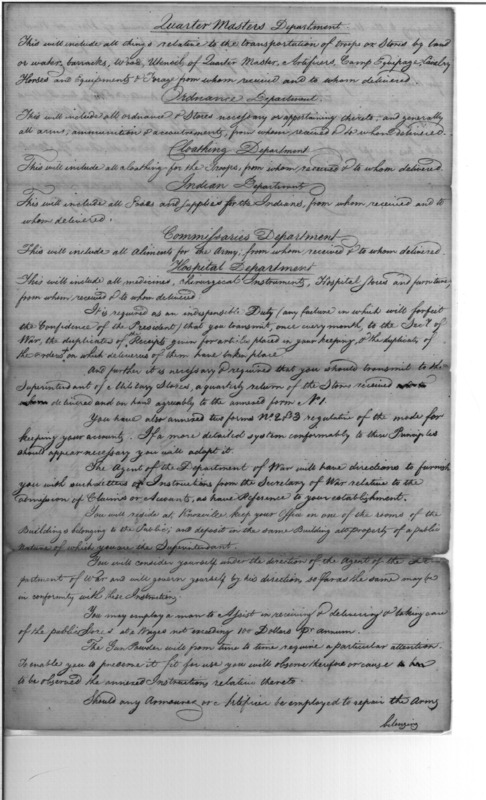 Quarter Masters Department
This will include all things relative to the transportation of troops or Stores by land
or water, barracks, Utensils of Quarter Master, Artificers, Camp Equipage, Cavalry
Horses and Equipments & Forage from whom received and to whom delivered.
Ordnance Department.
This will include all ordnance & Stores necessary or appertaining thereto, and generally
all arms, ammunition & accoutrements, from whom, received & to whom delivered.
Cloathing Department
This will include all cloathing for the Troops, from whom, received & to whom delivered.
Indian Department
This will include all Goods and supplies for the Indians, from whom, received and to
whom delivered.
Commissaries Department
This will include all Aliments for the Army, from whom, received & to whom delivered.
Hospital Department
This will include all medicines, Chirurgical Instruments, Hospital stores and furniture,
from whom, received & to whom delivered
It is required as an indispensible Duty (any failure in which will forfeit
the Confidence of the President) that you transmit, once every month, to the Secy. of
War, the duplicates of the Receipts given for articles placed in your keeping, & the duplicates of
the orders on which deliveries of them have taken place.
And further it is necessary & required that you should transmit to the
Superintendant of Military Stores, a quarterly return of the Stores received
delivered and on hand agreeably to the annexed form No. 1.
You have also annexed two forms No. 2 & 3 regulative of the mode for
keeping your accounts. If a more detailed system conformably to these Principles
should appear necessary you will adopt it.
The Agent of the Department of War will have directions to furnish
you with such letters of Instructions from the Secretary of War relative to the
admission of Claims or Accounts, as have Reference to your establishment.
You will reside at Knoxville keep your Office in one of the rooms of the
Buildings belonging to the Public, and deposit in the same Building all property of a public
nature of which you are the Superintendant.
You will consider yourself under the direction of the Agent of the De-
partment of War and will govern yourself by his direction so far as the same may be
in conformity with these Instructions
You may employ a man to Assist in receiving & delivering & taking care
of the public Stores at a Wages not exceeding 100 Dollars pr. annum.
The Gun Powder will from time to time require a particular attention.
To enable you to preserve it fit for use you will observe therefore or cause
to be observed the annexed Instructions relative thereto.
Should any Armourer or Artificer be employed to repair the Arms
belonging